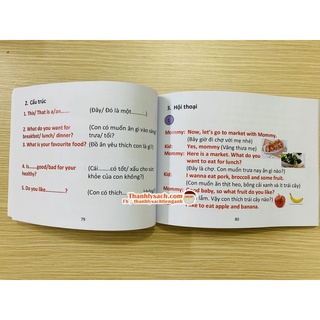 2. Cấu trúc
1. This/ That is a/an......
(Đây/ Đó là một...........)
2. What do you want for
breakfast/ lunch/ dinner?
(Con có muốn ăn gì vào sáng
trưa/ tối?
3. What is your favourite food?
(Đồ ăn yêu thích con là gì?)
4. Is......good/bad for your
healthy?
(Cái........có tốt/ xấu cho sức
khỏe của con không?)
5. Do you like............?
(Con có thích...
Thanhlysach.com
FB: thanhlysachtienganh
75
3. Hội thoại
Mommy: Now, let's go to market with Mommy.
(Bây giờ đi chợ với mẹ nhé)
Kid: Yes, mommy (Vâng thưa mẹ)
Mommy: Here is a market. What do you
want to eat for lunch?
(Đây là chợ. Con muốn trưa nay ăn gì nào?)
Kid: I wanna eat pork, broccoli and some fruit.
(Con muốn ăn thịt heo, bông cải xanh và ít trái cây)
Mommy: Good baby, so what fruit do you like?
lắm. Vậy con thích trái cây nào?)
like to eat apple and banana.
80